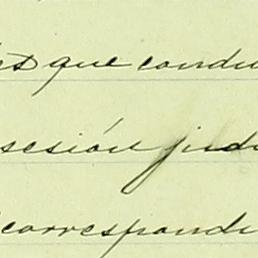 es que condu
sesión judi
corresponde